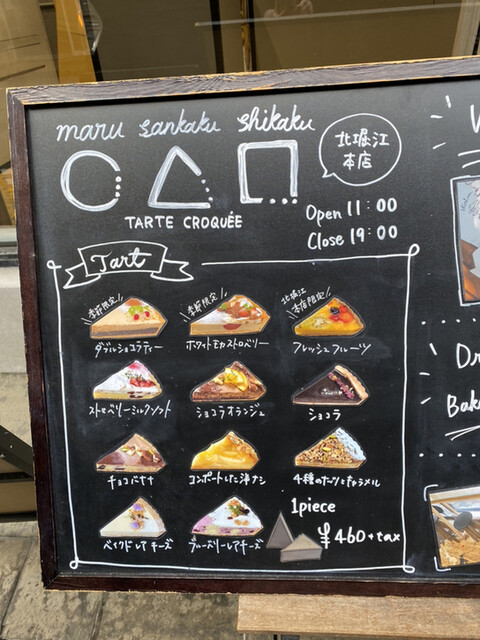 maru sankaku shikaku
北堀江
本店
TARTE CROQUÉE
Open 11:00
Close 19:00
Tart
季節限定
季節限定
北堀江
本店限定
ダブルショコラティー
ホワイトモカストロベリー
フレッシュフルーツ
ストロベリーミルクソフト
ショコラオランジュ
ショコラ
チョコバナナ
コンポートした洋ナシ
4種のナッツとキャラメル
ベイクドレアチーズ
ブルーベリーレアチーズ
1piece
¥460+tax
Bake